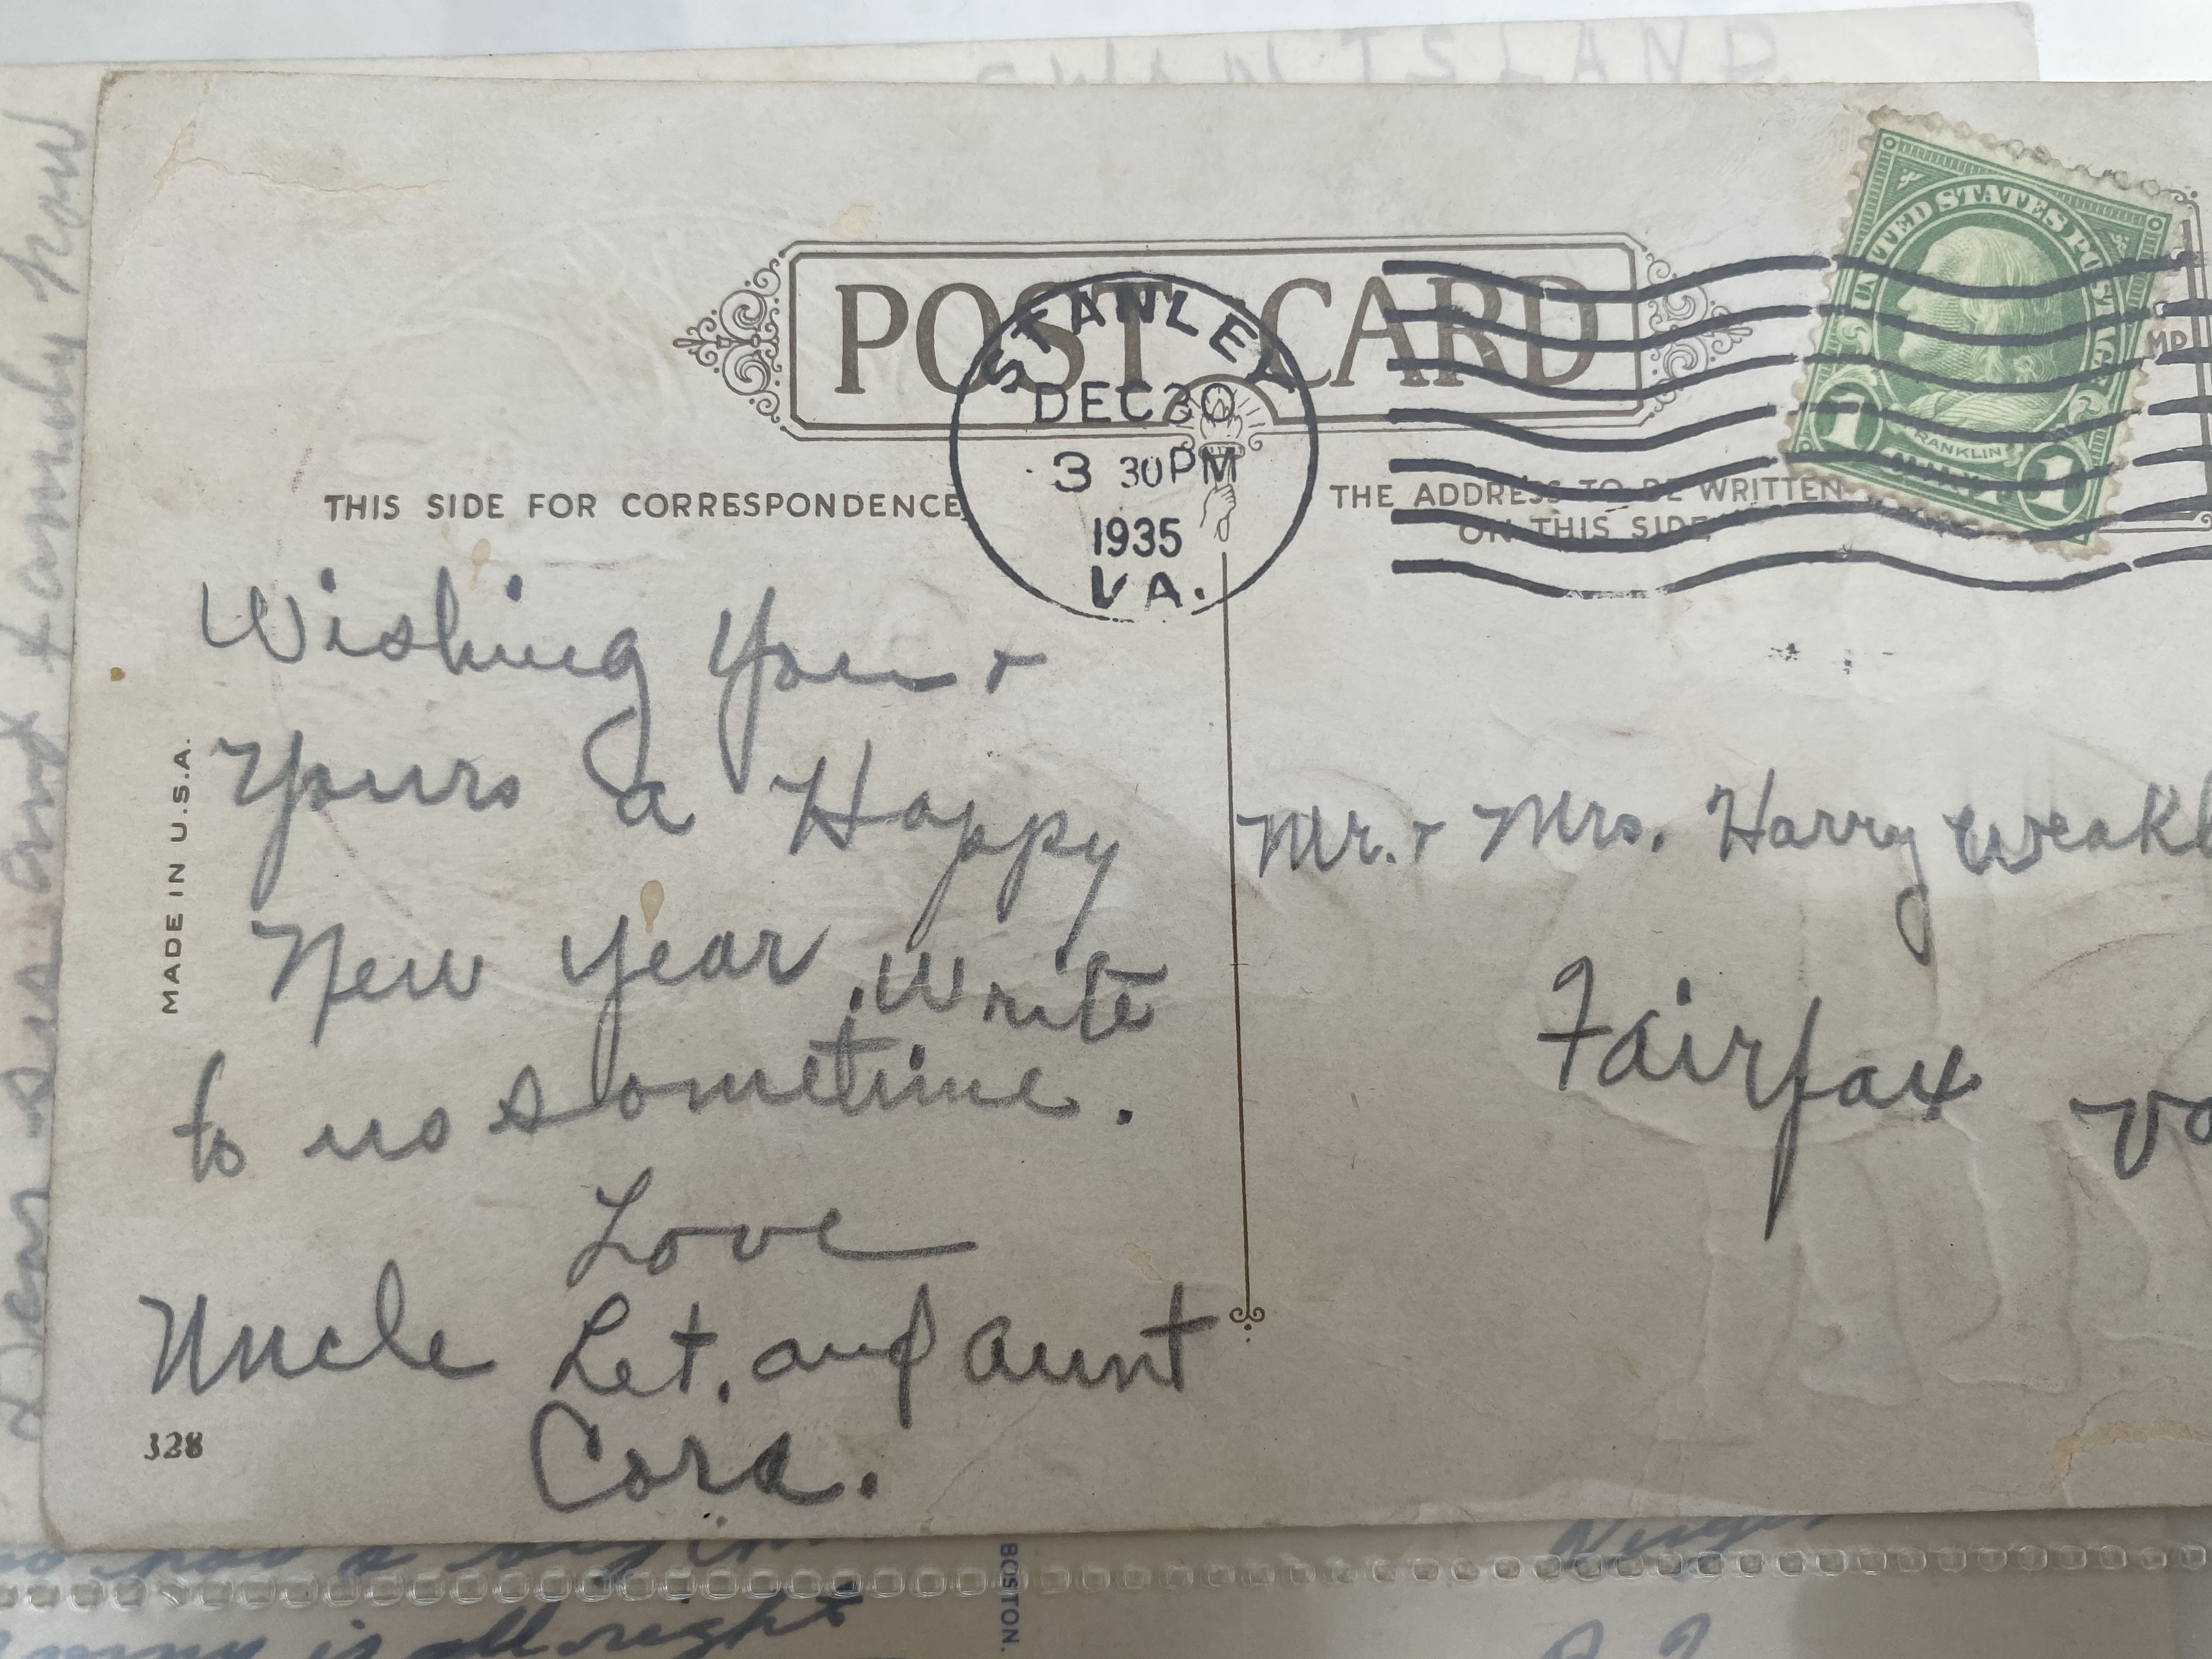 ISLAND
POST CARD
STANLEY
DEC 30
3 30 PM
1935
VA.
UNITED STATES POSTAGE
FRANKLIN
1 1
THIS SIDE FOR CORRESPONDENCE
THE ADDRESS TO BE WRITTEN
ON THIS SIDE
Wishing you +
Yours a Happy
New Year. Write
to us sometime.
Love
Uncle Let. and Aunt
Cora.
Mr. + Mrs. Harry Weakl
Fairfax Va
MADE IN U.S.A.
328
Dear Sis and + family how
BOSTON.
is all right